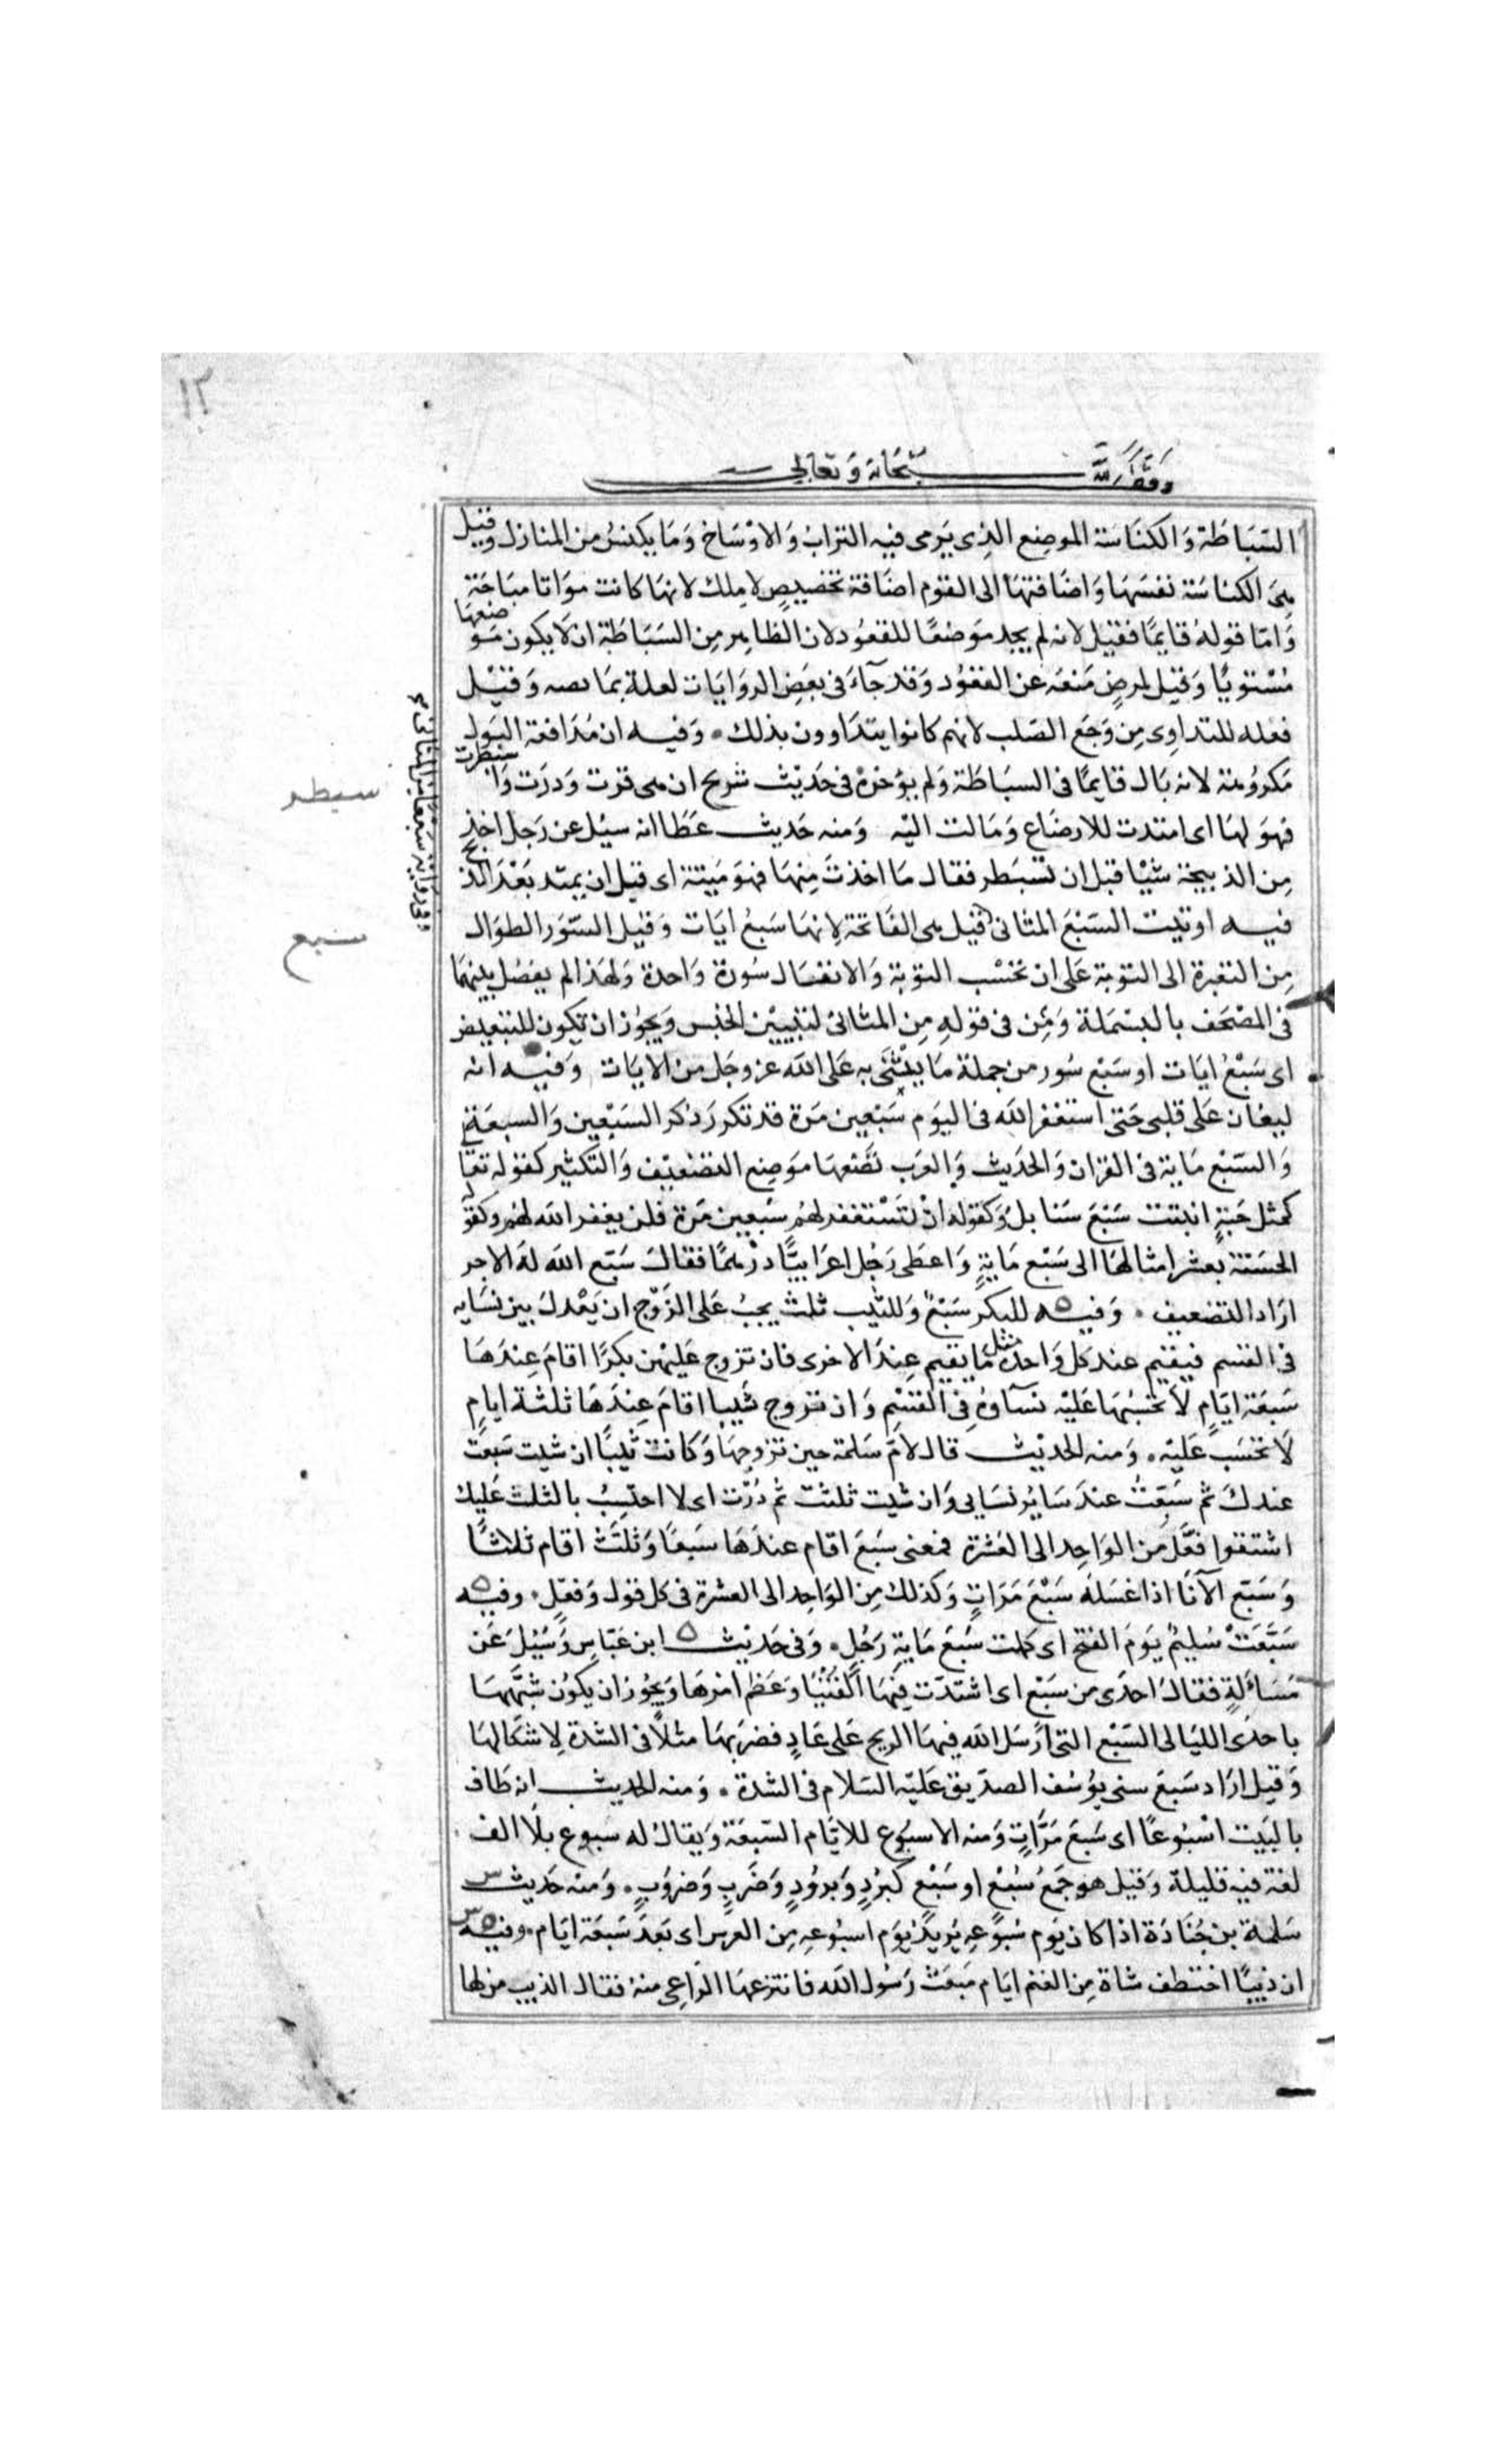 ١٢
وقف لله سبحانه وتعالى
السّبَاطَة وَالكنَاسَة الموضِع الذِى يَرمى فيه الترابُ وَالاوْسَاخ وَمَا يكنسُ من المنازل وقيل
هىَ الكناسَة نفسَهَا وَاضَافتهَا الى القوم اضَافة تخصيصٍ لا مِلك لانهَا كانت موَاتا مبَاحَة
وَامّا قوله قايمًا فقيل لانه لم يجد مَوضعًا للقعُود لان الظاهِر مِن السّبَاطَة ان لا يكون مَوضعهَا
مُسْتويًا وَقيل لمرضٍ مَنعَه عن القعُود وَقد جآءَ فى بعَضِ الروَايَات لعلة بمَابضه وَقيْل
فعله للتداوِى مِن وَجَع الصّلب لانهم كانوا يتدَاوون بذلك ۰ وَفيه ان مُدَافعة البَول
مَكروُهة لانه بَال قايمًا فى السبَاطَة وَلم يؤخرهْ فى حَديْث شريح ان هى قرت وَدرَت وَاسبطرت
فهوَ لهَا اى امتدت للارضَاع وَمَالت اليْه وَمنه حَديث عَطَا انه سيُل عن رَجل اخذ
مِن الذبيحَة شيْا قبل ان تسْبَطر فقال مَا اخذتَ مِنهَا فهوَ مَيتة اى قبل ان يمتد بَعْد الذبح
فيه اوتيت السّبْعَ المثانى قيل هى الفاتحة لانهَا سَبعُ ايَات وَقيل السّوَر الطوَال
مِن البقرة الى التوبَة عَلى ان تحسْب التوْبة وَالانفال سُورة وَاحدة وَلهَذا لم يفصَل بينهمَا
فى المصْحَف بالبسْملة وَمِن فى قوله مِن المثانى لتبييْن الجنس وَيجُوز ان يكون للتبعيض
اى سَبْعُ ايَات او سَبْع سُور من جملة مَا يثْنَى به عَلى الله عز وجَل من الايَات وَفيه انه
ليغان عَلى قلبى حَتى استغفر الله فى اليوَم سَبْعين مَرة قد تكرر ذكر السَبْعِين وَالسبعَة
وَالسّبْع مَاية فى القرَان وَالحَديث وَالعرَب تضَعهَا موَضِع التضعيْف وَالتكثير كقوله تعَا
كمثل حَبةٍ انبتت سَبْعَ سَنابل وَكقوله انْ تَسْتغفر لهُم سَبعين مَرة فلن يغفر الله لهُم وكقوله
الحسَنة بعشر امثالهَا الى سَبْع مَايةٍ وَاعطى رَجُل اعرَابيًّا درهمًا فقال سَبّع الله لهَ الاجر
ارَاد التضعيف ۰ وَفيه للبكر سَبْعً وَللثيّب ثلث يجبُ عَلى الزَوْج ان يَعْدل بين نسَايه
فى القسم فيقيم عند كل وَاحدة مثل مَا يقيم عِندَ الاخرى فان تزوج عَليهْن بكرًا اقامَ عِندَهَا
سَبعَة ايَامٍ لاَ تحسُبهَا عَليْه نسَآوهُ فى القسْمِ وَان تزوج ثيبا اقامَ عِندَهَا ثلثة ايامٍ
لاَ تحسَب عَليْه ۰ وَمنه الحديْث قال لامّ سَلمة حين تزوجهَا وَكانت ثيبًا ان شيت سَبعتُ
عندكَ ثم سَبّعتُ عندَ سَاير نسَايى وَان شيت ثلثت ثم دُرْت اى لا احتسِبُ بالثلث عَليك
اشتقوا فعَّل من الوَاحِد الى العَشرة فمعنى سَبعَ اقام عندَهَا سَبعًا وَثلَّثَ اقام ثلاثًا
وَسَبّع الآنَا اذا غسَله سَبْعَ مَرَاتٍ وَكذلك مِن الوَاحِد الى العشرة فى كل قول وَفعْل ۰ وفيه
سَبَّعَتْ سُليْم يَومَ الفتح اى كملت سَبعَ مَايةِ رَجُل ۰ وَفى حَديْث ابن عَبّاسٍ وَسُيُل عَن
مَسَالَةٍ فقال احدَى من سَبْع اى اشتدّت فيهَا الفُتْيَا وَعَظم امْرهَا وَيجُوز ان يكُون شبَّههَا
باحدَى الليَالى السّبْع التى ارْسَل الله فيهَا الريح عَلى عَادٍ فضرَبهَا مثلاً فى الشدة لاِشكالهَا
وَقيل ارَاد سَبعَ سنى يوُسُف الصدّيق عَليْه السّلام فى الشدة ۰ وَمنه الحديث انه طَاف
بالبَيْت اسْبُوعًا اى سَبعَ مَرَّاتٍ وَمنه الاسبُوَع للايَام السّبعَة وَيقالُ له سبوع بلاَ الف
لغة فيه قليلة وَقيل هو جَمعُ سُبْعْ او سَبْع كبُرْدٍ وَبرُودٍ وَضَربٍ وَضرُوبٍ ۰ وَمنه حَديث
سَلمة بن جُنَادَة اذا كان يَوم سُبوُعِهِ يرُيدُ يوَم اسبُوعهِ مِن العرس اى بَعدَ سَبعَة ايَام ۰ وفيه
ان ذيبًا اختطف شاة مِن الغنم ايَام مَبعَث رَسُول الله فانتزعهَا الرّاعِى منهُ فقال الذيب من لها
سبطر
سبع
وفى رواية سبعا من المثانى